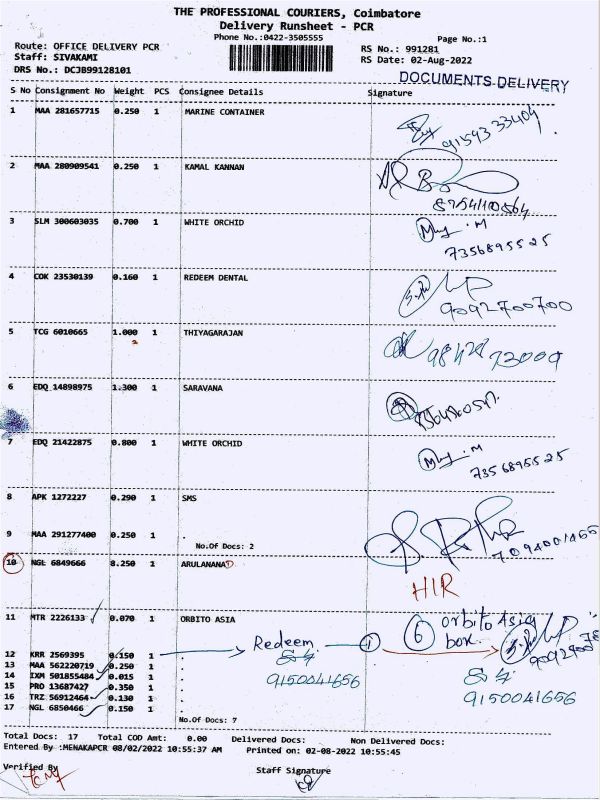 THE PROFESSIONAL COURIERS, Coimbatore
Delivery Runsheet - PCR
Phone No.:0422-3505555
Page No.:1
Route: OFFICE DELIVERY PCR
RS No.: 991281
Staff: SIVAKAMI
RS Date: 02-Aug-2022
DRS No.: DCJ899128101
DOCUMENTS DELIVERY
S No Consignment No Weight PCS Consignee Details Signature
1 MAA 281657715 0.250 1 MARINE CONTAINER
91593 33404
2 MAA 280909541 0.250 1 KAMAL KANNAN
3 SLM 300603035 0.700 1 WHITE ORCHID
7356895525
4 COK 23530139 0.160 1 REDEEM DENTAL
9092700700
5 TCG 6010665 1.000 1 THIYAGARAJAN
6 EDQ 14898975 1.300 1 SARAVANA
7 EDQ 21422875 0.800 1 WHITE ORCHID
7356895525
8 APK 1272227 0.290 1 SMS
9 MAA 291277400 0.250 1 .
No.Of Docs: 2
10 NGL 6849666 8.250 1 ARULANANAD
HIR
11 MTR 2226133 0.070 1 ORBITO ASIA
6 orbito Asia
box
Redeem 1
12 KRR 2569395 0.150 1 .
13 MAA 562220719 0.250 1 .
14 IXM 501855484 0.015 1 .
9150041656
15 PRO 13687427 0.350 1 .
9150041656
16 TRZ 56912464 0.130 1 .
17 NGL 6850466 0.150 1 .
No.Of Docs: 7
Total Docs: 17 Total COD Amt: 0.00 Delivered Docs: Non Delivered Docs:
Entered By :MENAKAPCR 08/02/2022 10:55:37 AM Printed on: 02-08-2022 10:55:45
Verified By
Staff Signature